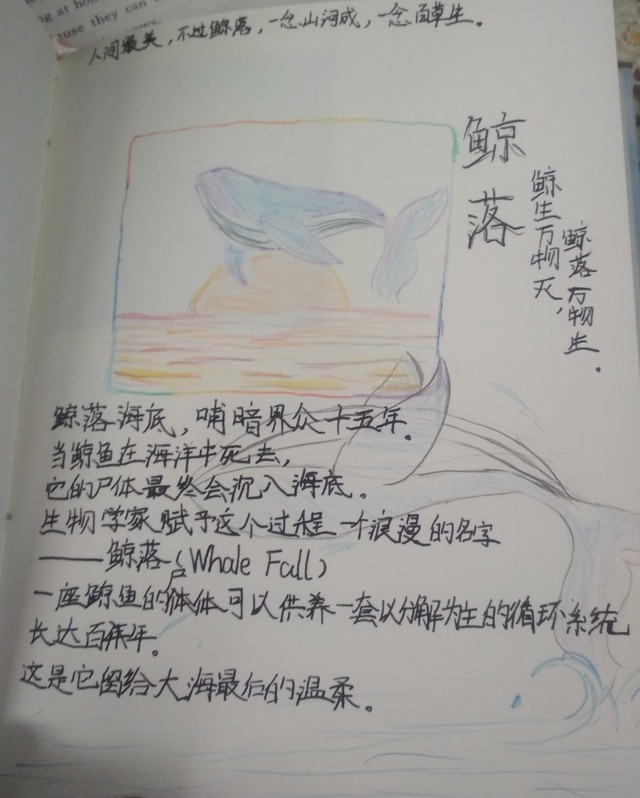 g at ho
use they can
人间最美，不过鲸落，一念山河成，一念百草生。
鲸落
鲸生万物灭，
鲸落万物生。
鲸落海底，哺暗界众十五年。
当鲸鱼在海洋中死去，
它的尸体最终会沉入海底。
生物学家赋予这个过程一个浪漫的名字
——鲸落（Whale Fall）
一座鲸鱼的尸体可以供养一套以分解为主的循环系统
长达百年。
这是它留给大海最后的温柔。